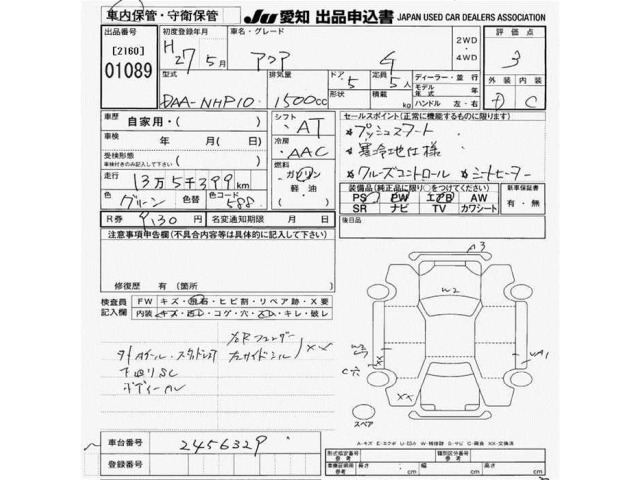 車内保管・守衛保管
JU 愛知 出品申込書 JAPAN USED CAR DEALERS ASSOCIATION
出品番号
[2160]
01089
初度登録年月
H 27 5月
車名・グレード
アクア G
2WD
・4WD
評価点
3
型式
DAA-NHP10
排気量
1500cc
ドア 5
形状
定員 5人
積載 kg
ディーラー・並行
モデル年式 年
ハンドル 左・右
外装 内装
D C
車歴
自家用・( )
車検
年 月( 日)
受検形態
車検付きのみ記入して下さい
( )
走行
13万5千399km
色
グリーン
色替
色コード
588
シフト
AT
冷房
AAC
燃料
ガソリン
軽・油
( )
セールスポイント(正常に機能するものに限ります)
★プッシュスタート
★寒冷地仕様
★クルーズコントロール ★シートヒーター
装備品(純正品に限り○をつけてください)
PS PW エアB AW
SR ナビ TV カワシート
新車保証書
有・無
R券
9130円
名変通知期限 月 日
後日品
注意事項申告欄(不具合内容等は具体的に記入して下さい)
修復歴 有(箇所 )
検査員
記入欄
FW キズ・飛石・ヒビ割・リペア跡・X要
内装 キズ・汚レ・コゲ・穴・スレ・キレ・破レ
左右Rフェンダー
左右サイドシル
XX
下廻りSC
A3
W2
W2
XX
C穴
XX
UA1
スペア
A-キズ E-エクボ U-凹み W-補修跡 S-サビ C-腐食 XX-交換済
車台番号
2456329
登録番号
形式指定番号
参考
種別区分番号
参考
長さ cm
幅 cm
高さ cm